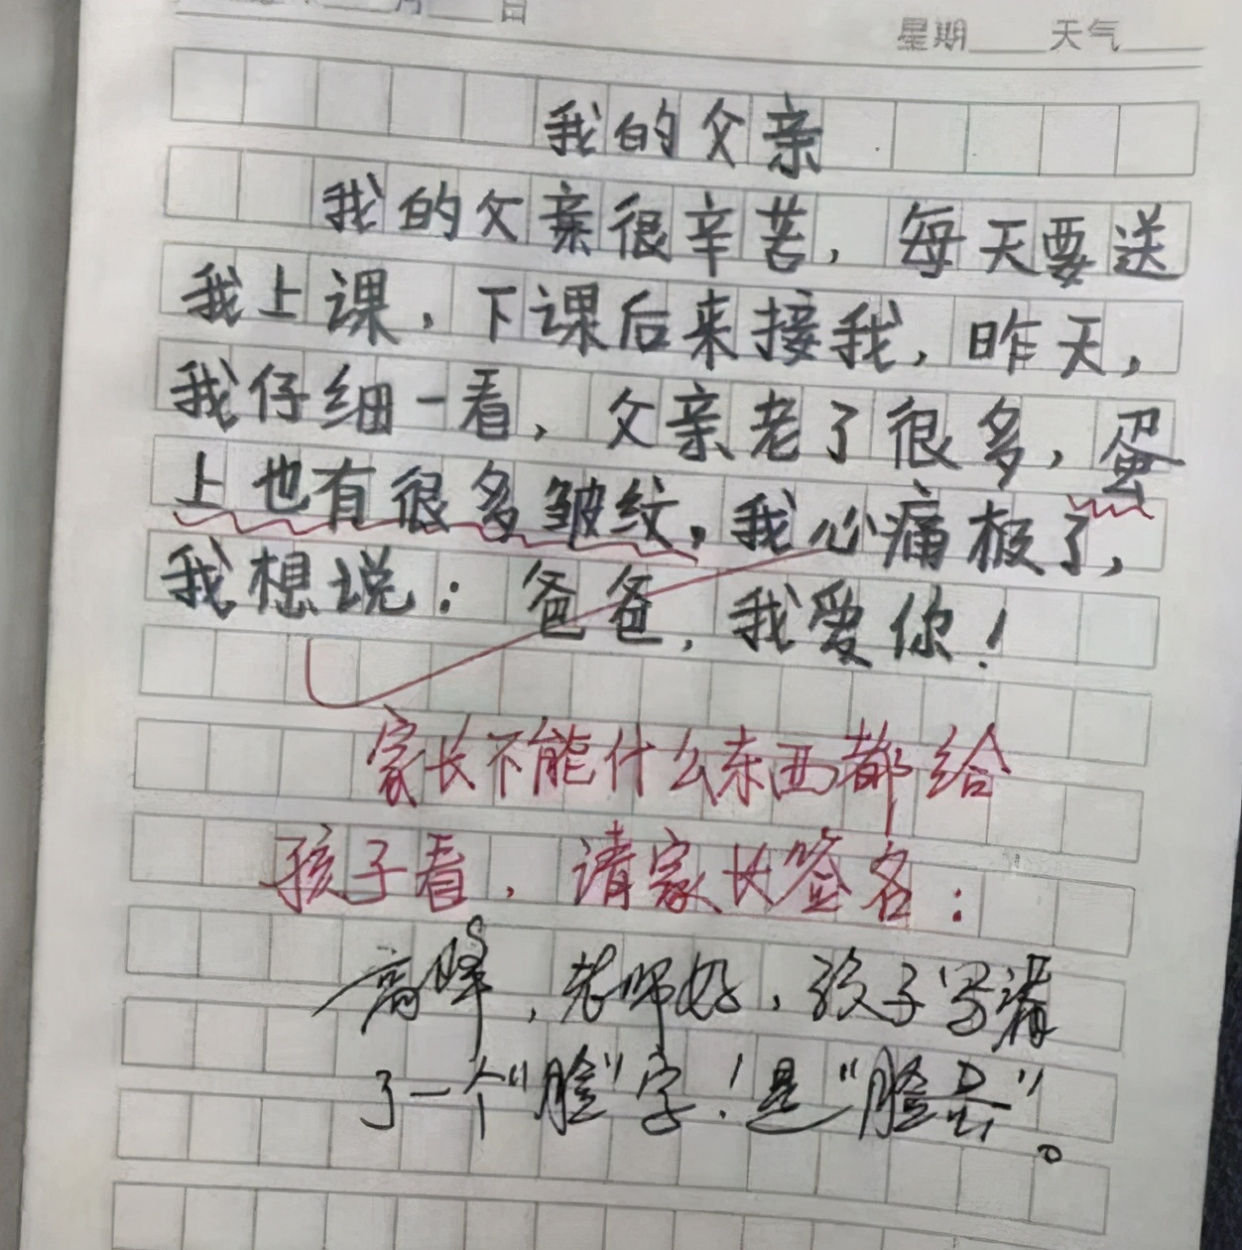 月 日
星期 天气
我的父亲
我的父亲很辛苦，每天要送
我上课，下课后来接我，昨天，
我仔细一看，父亲老了很多，蛋
上也有很多皱纹。我心痛极了，
我想说：爸爸，我爱你！
家长不能什么东西都给
孩子看，请家长签名：
高峰，老师好，孩子写漏
了一个“脸”字！是“脸蛋”。